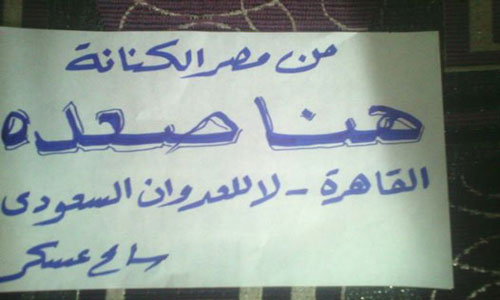 من مصر الكنانة
هنا صعده
القاهرة - لا للعدوان السعودى
سامح عسكر